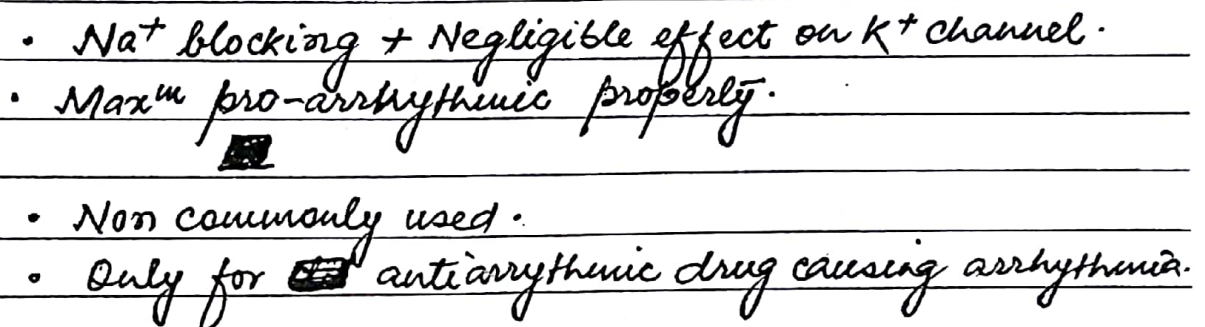 • Na⁺ blocking + Negligible effect on K⁺ channel.
• Maxᵐ pro-arrhythmic property.
• Non commonly used.
• Only for antiarrythmic drug causing arrhythmia.